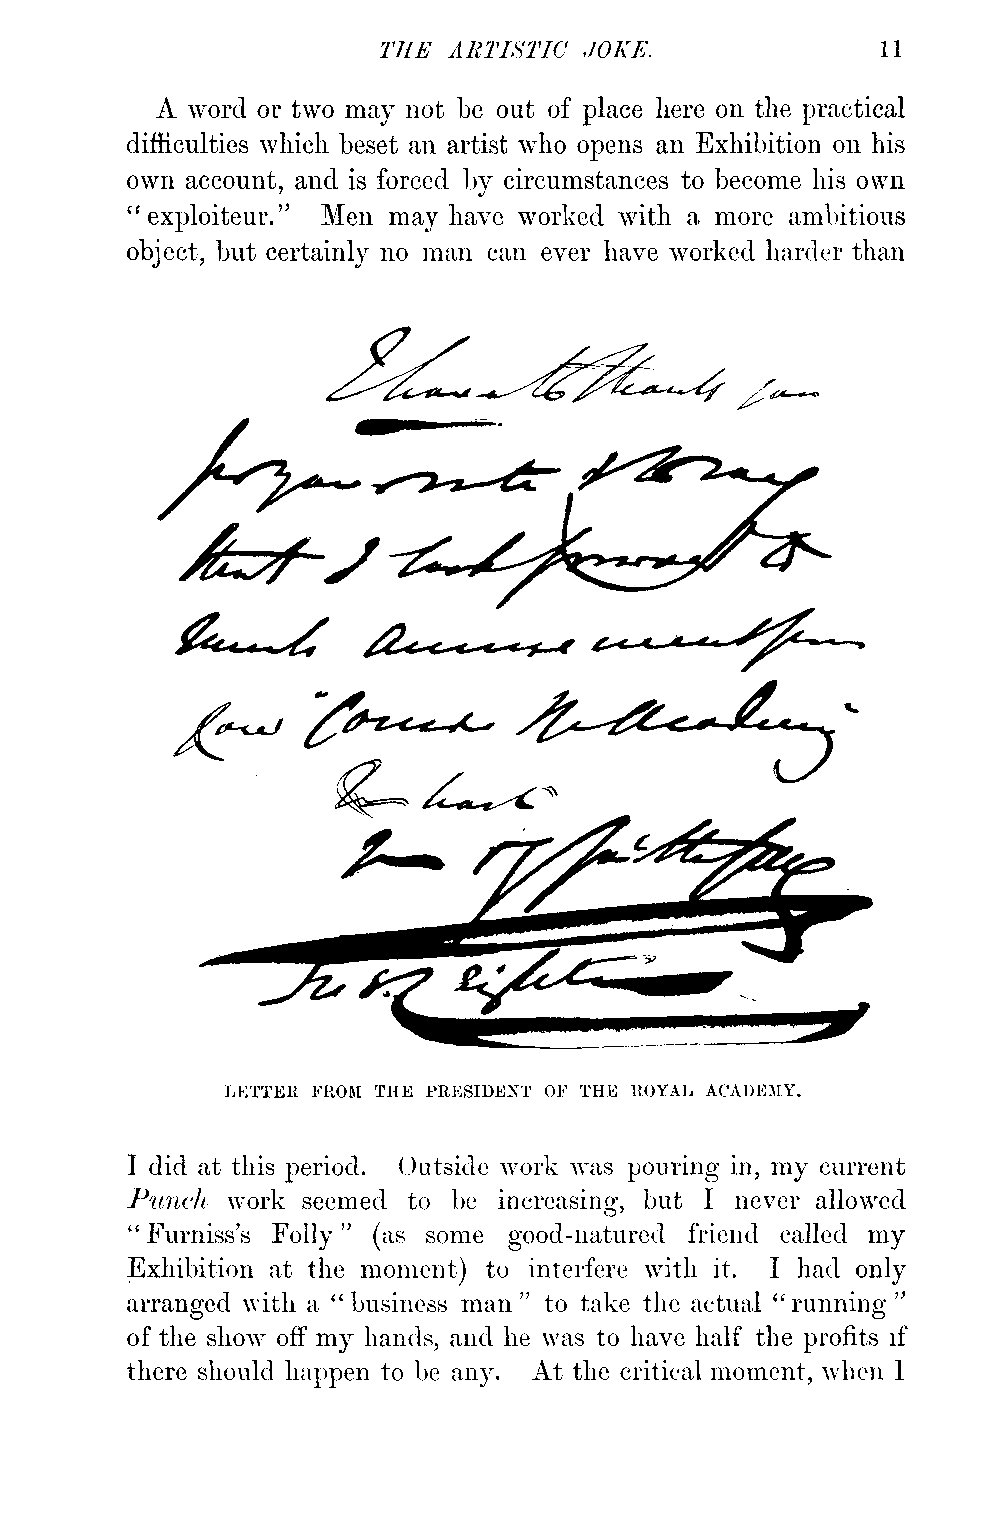 THE ARTISTIC JOKE. 11
A word or two may not be out of place here on the practical
difficulties which beset an artist who opens an Exhibition on his
own account, and is forced by circumstances to become his own
"exploiteur." Men may have worked with a more ambitious
object, but certainly no man can ever have worked harder than
I have to thank you
for your note & to say
that I look forward to
much amusement from
your "Comic Academy"
In haste
Yrs very faithfully
Fred Leighton
LETTER FROM THE PRESIDENT OF THE ROYAL ACADEMY.
I did at this period. Outside work was pouring in, my current
Punch work seemed to be increasing, but I never allowed
"Furniss's Folly" (as some good-natured friend called my
Exhibition at the moment) to interfere with it. I had only
arranged with a "business man" to take the actual "running"
of the show off my hands, and he was to have half the profits if
there should happen to be any. At the critical moment, when I